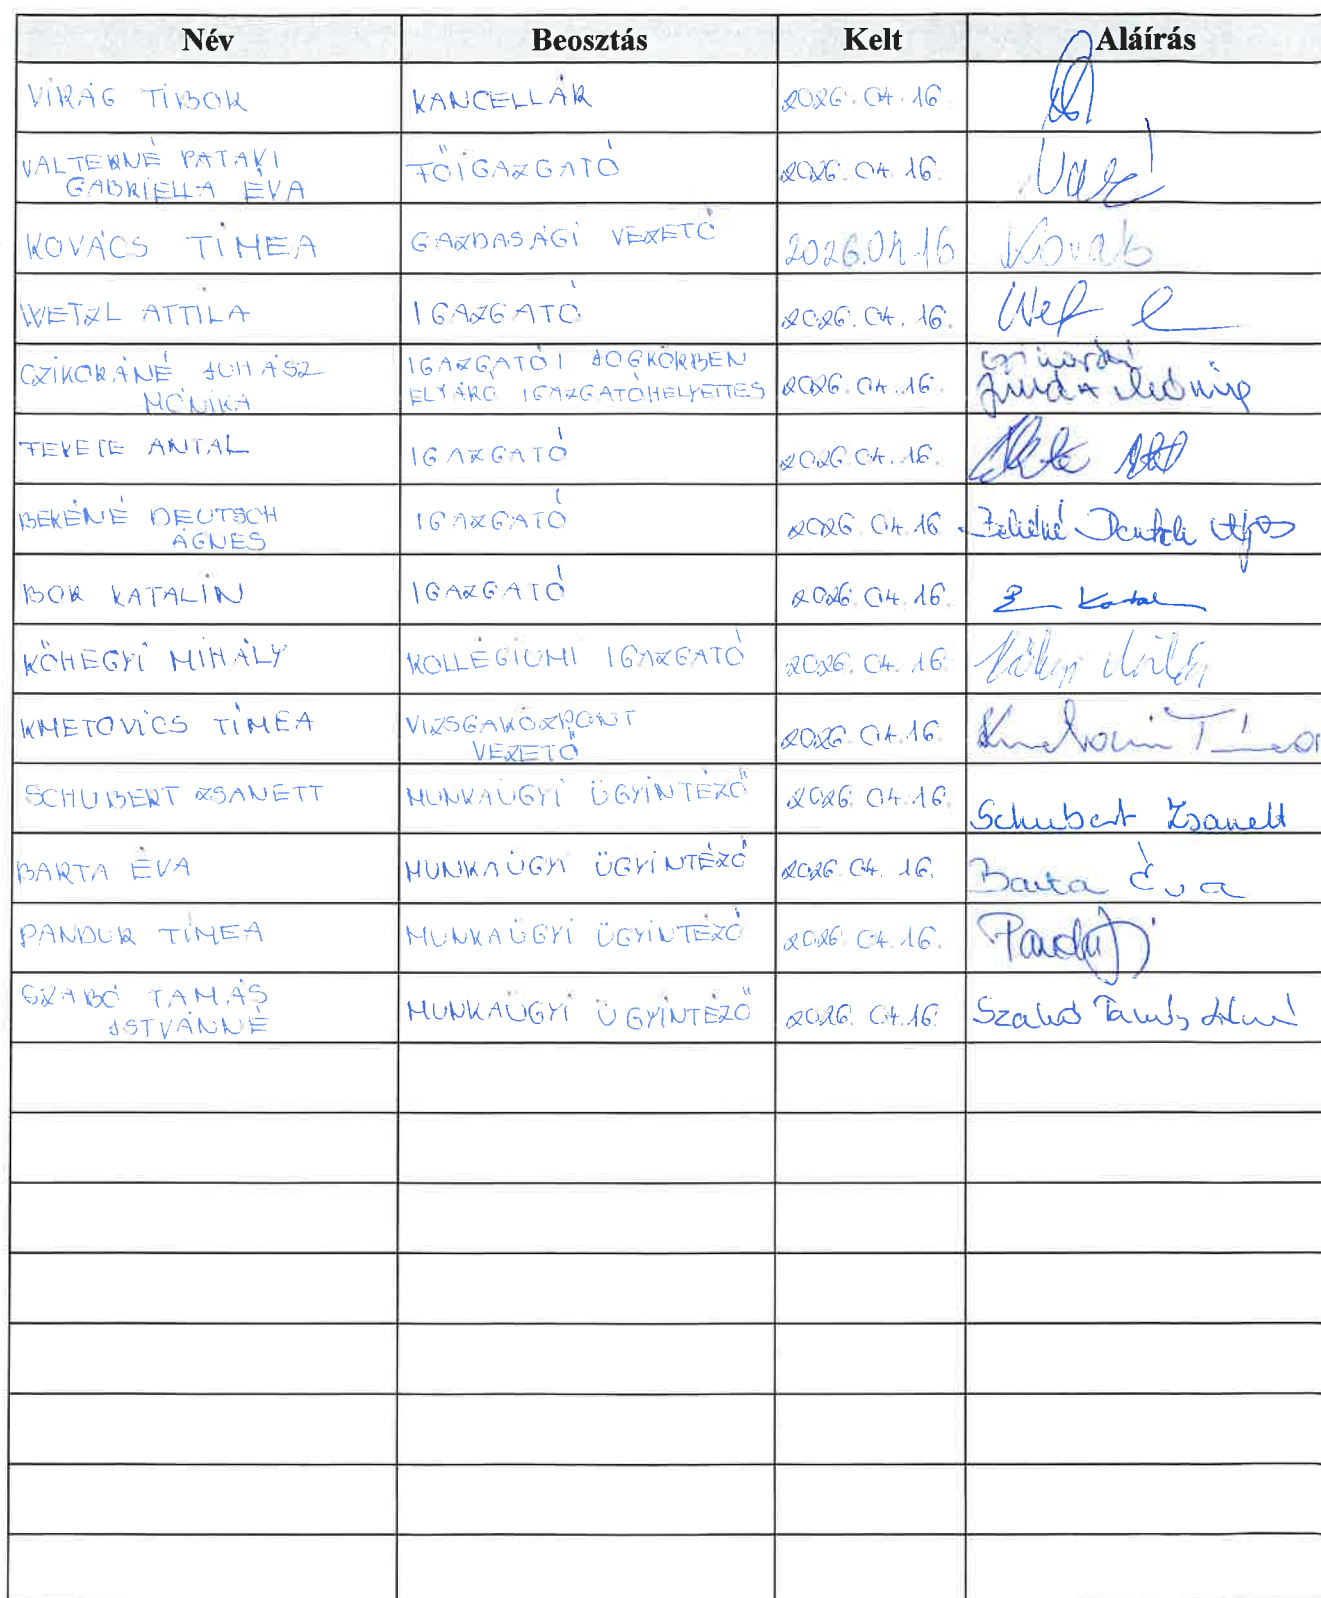 Név Beosztás Kelt Aláírás
VIRÁG TIBOR KANCELLÁR 2026.04.16
VALTERNÉ PATAKI
GABRIELLA ÉVA FŐIGAZGATÓ 2026.04.16.
KOVÁCS TÍMEA GAZDASÁGI VEZETŐ 2026.04.16 Kovács
WETZL ATTILA IGAZGATÓ 2026.04.16.
CZIKORÁNÉ JUHÁSZ IGAZGATÓI JOGKÖRBEN
MÓNIKA ELJÁRÓ IGAZGATÓHELYETTES 2026.04.16.
FEKETE ANTAL IGAZGATÓ 2026.04.16.
BEKÉNÉ DEUTSCH
ÁGNES IGAZGATÓ 2026.04.16 Bekéné Deutsch Ágnes
BOR KATALIN IGAZGATÓ 2026.04.16.
KŐHEGYI MIHÁLY KOLLÉGIUMI IGAZGATÓ 2026.04.16
KMETOVICS TÍMEA VIZSGAKÖZPONT
VEZETŐ 2026.04.16.
SCHUBERT ZSANETT MUNKAÜGYI ÜGYINTÉZŐ 2026.04.16. Schubert Zsanett
BARTA ÉVA MUNKAÜGYI ÜGYINTÉZŐ 2026.04.16. Barta Éva
PANDUR TÍMEA MUNKAÜGYI ÜGYINTÉZŐ 2026.04.16.
SZABÓ TAMÁS
ISTVÁNNÉ MUNKAÜGYI ÜGYINTÉZŐ 2026.04.16. Szabó Tamás